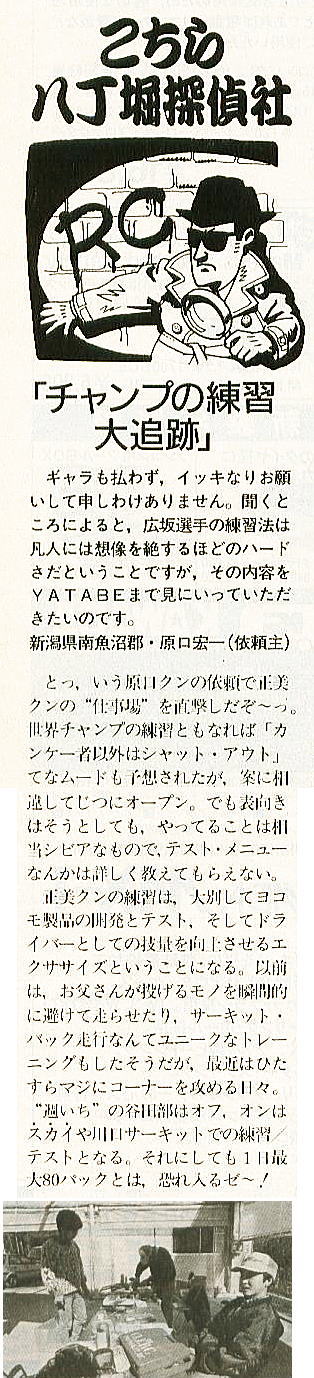 こちら
八丁堀探偵社
RC
「チャンプの練習
大追跡」
ギャラも払わず，イッキなりお願
いして申しわけありません。聞くと
ころによると，広坂選手の練習法は
凡人には想像を絶するほどのハード
さだということですが，その内容を
YATABEまで見にいっていただ
きたいのです。
新潟県南魚沼郡・原口宏一(依頼主)
とっ，いう原口クンの依頼で正美
クンの“仕事場”を直撃しだぞ〜っ。
世界チャンプの練習ともなれば「カ
ンケー者以外はシャット・アウト」
てなムードも予想されたが，案に相
違してじつにオープン。でも表向き
はそうとしても，やってることは相
当シビアなもので，テスト・メニュー
なんかは詳しく教えてもらえない。
正美クンの練習は，大別してヨコ
モ製品の開発とテスト，そしてドラ
イバーとしての技量を向上させるエ
クササイズということになる。以前
は，お父さんが投げるモノを瞬間的
に避けて走らせたり，サーキット・
バック走行なんてユニークなトレー
ニングもしたそうだが，最近はひた
すらマジにコーナーを攻める日々。
“週いち”の谷田部はオフ，オンは
スカイや川口サーキットでの練習／
テストとなる。それにしても1日最
大80パックとは，恐れ入るゼ〜！